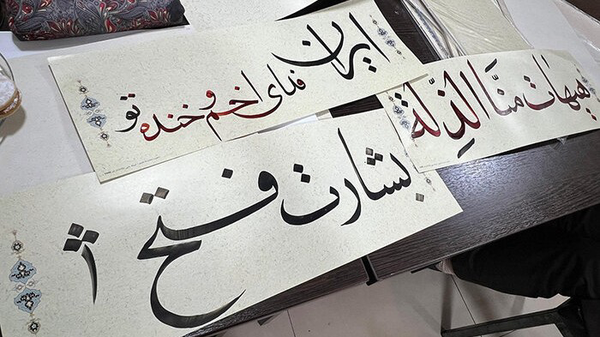 ایران فدای اخم و خنده تو
هیهات منّا الذلّة
بشارت فتح